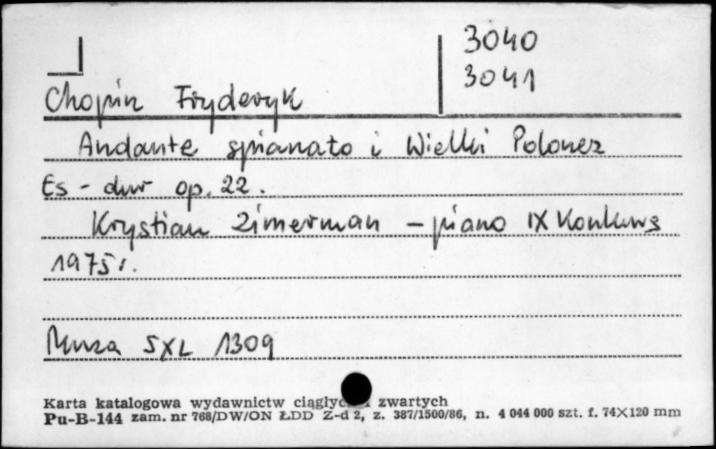 3040
3041
Chopin Fryderyk
Andante spianato i Wielki Polonez
Es - dur op. 22.
Krystian Zimerman - piano IX Konkurs
1975 r.
Muza SXL 1309
Karta katalogowa wydawnictw ciągłyc zwartych
Pu-B-144 zam. nr 768/DW/ON ŁDD Z-d 2, z. 387/1500/86, n. 4 044 000 szt. f. 74×120 mm